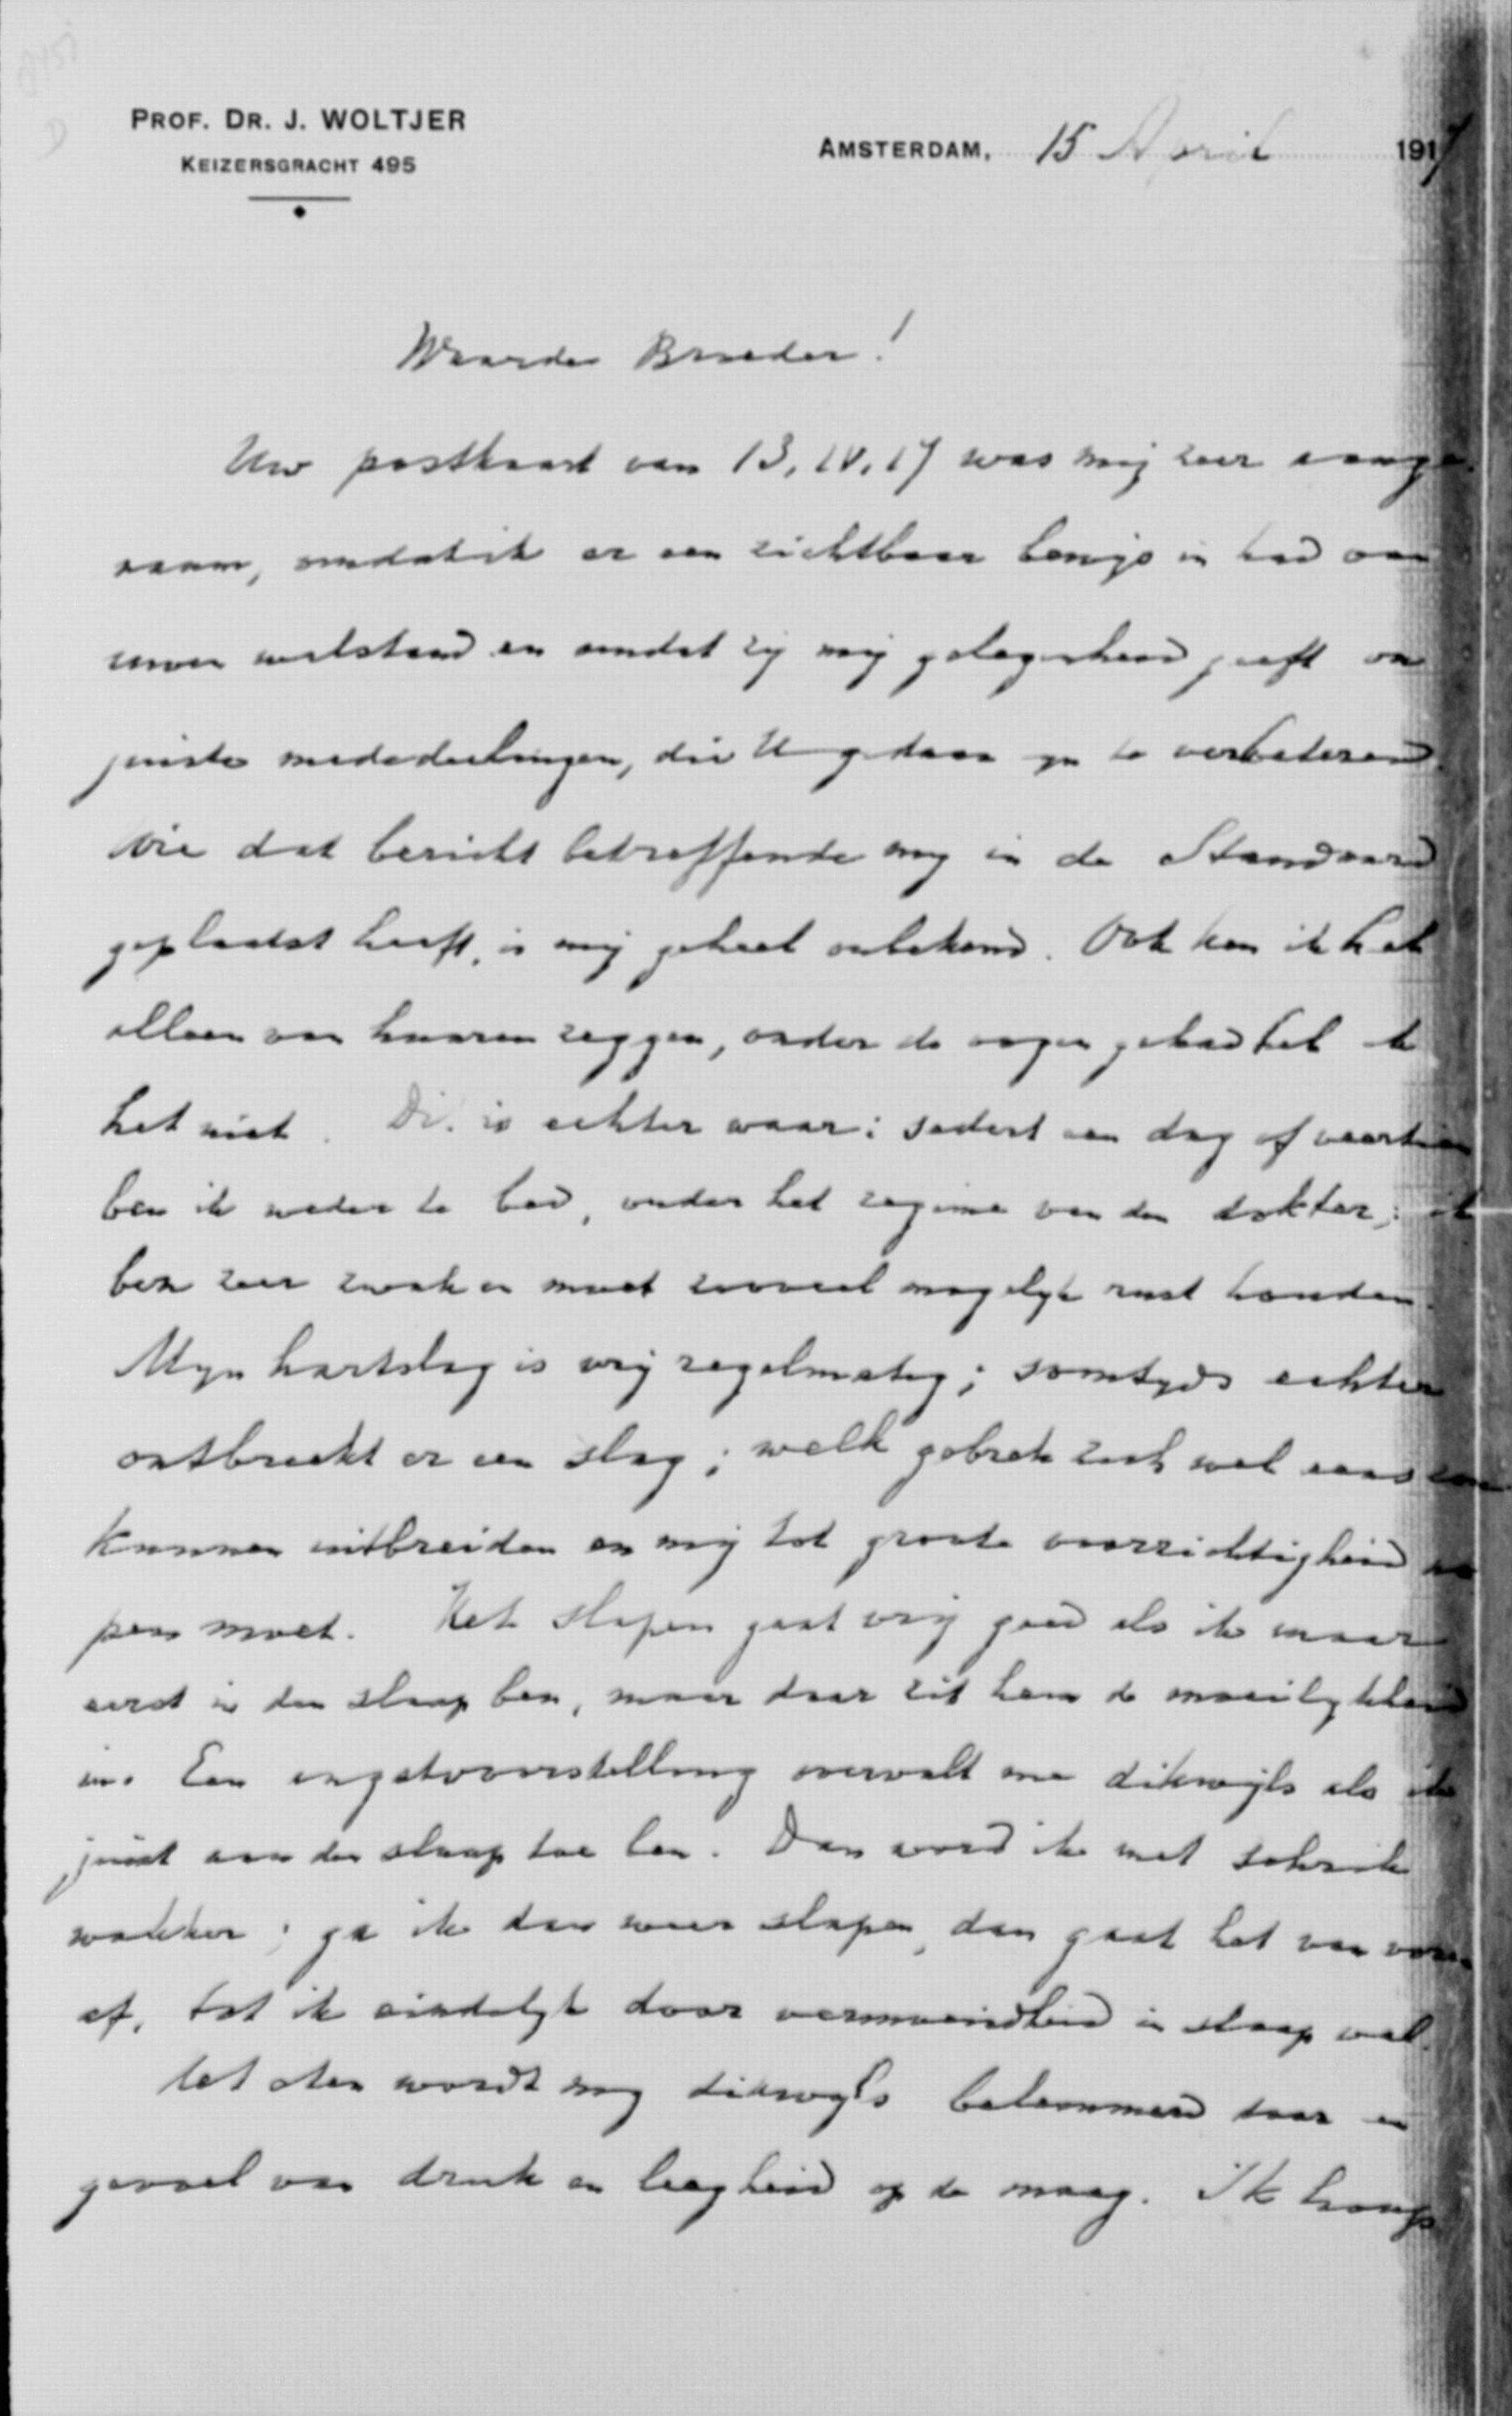 PROF. DR. J. WOLTJER
KEIZERSGRACHT 495
AMSTERDAM, 15 April 1917
Waarde Broeder!
Uw postkaart van 13.IV.17 was mij zeer aange-
naam, omdat ik er een zichtbaar bewijs in had van
uwen welstand en omdat zij mij gelegenheid geeft on
juiste mededeelingen, die U gedaan zijn te verbeteren.
Wie dat bericht betreffende mij in de Standaard
geplaatst heeft, is mij geheel onbekend. Ook ken ik het
alleen van hooren zeggen, onder de oogen gehad heb ik
het niet. Dit is echter waar: sedert een dag of veertien
ben ik weder te bed, onder het regime van den dokter; ik
ben zeer zwak en moet zooveel mogelijk rust houden.
Mijn hartslag is vrij regelmatig; somtijds echter
ontbreekt er een slag; welk gebrek zich wel eens zou
kunnen uitbreiden en mij tot groote voorzichtigheid
moet. Het slapen gaat vrij goed als ik maar
eerst in den slaap ben, maar daar zit hem de moeilijkheid
in. Een angstvoorstelling overvalt me dikwijls als ik
juist aan den slaap toe ben. Dan word ik met schrik
wakker; ga ik dan weer slapen, dan gaat het van voren
af, tot ik eindelijk door vermoeidheid in slaap val.
Het eten wordt mij dikwijls belemmerd door een
gevoel van druk en leegheid op de maag. Ik hoop